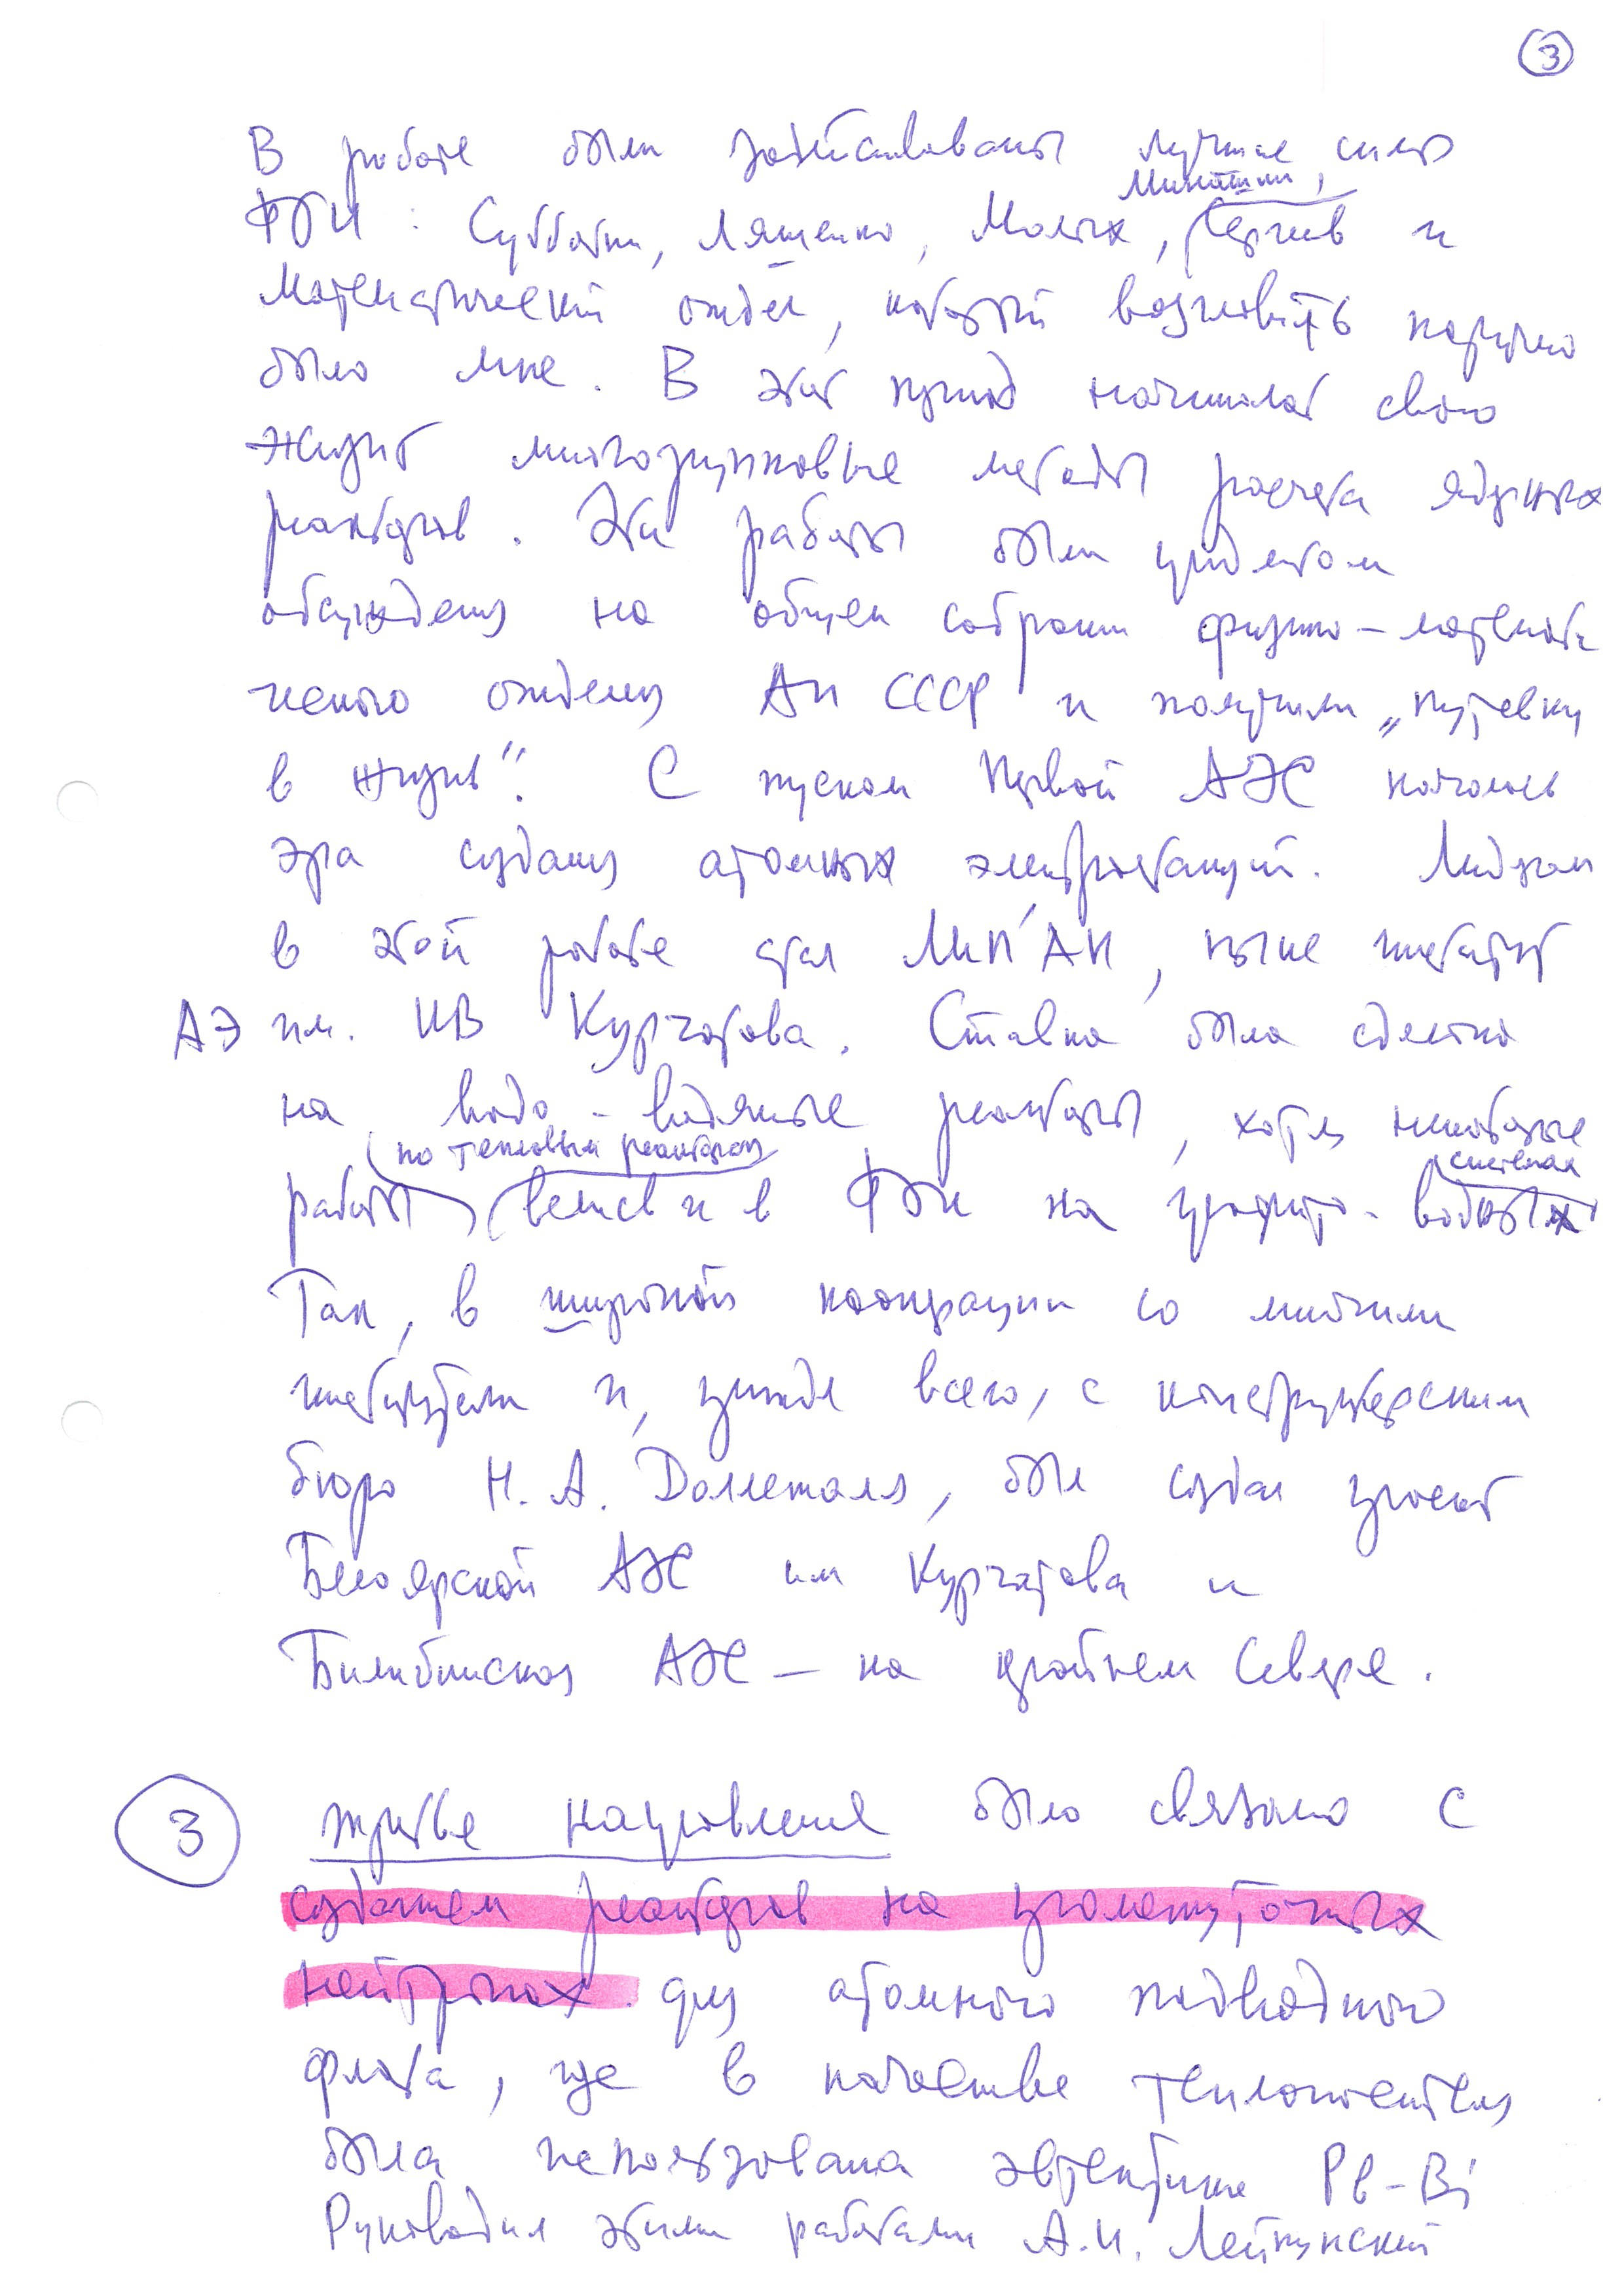 3
В работе были задействованы лучшие силы
ФЭИ : Субботин, Ляшенко, Малых, Минашин, Сергеев и
Математический отдел, который возглавить поручено
было мне. В этот период начинают свою
жизнь многогрупповые методы расчета ядерных
реакторов. Эти работы были предметом
обсуждения на общем собрании физико-математи
ческого отделения АН СССР и получили „путевку
в жизнь". С пуском Первой АЭС началась
эра создания атомных электростанций. Лидером
в этой работе стал ЛИПАН, ныне институт
АЭ им. ИВ Курчатова. Ставка была сделана
на водо-водяные реакторы, хотя некоторые
работы (по тепловым реакторам) велись и в ФЭИ на графито-водных системах
Так, в широкой кооперации со многими
институтами и, прежде всего, с конструкторским
бюро Н.А. Доллежаля, был создан проект
Белоярской АЭС им Курчатова и
Билибинская АЭС — на крайнем Севере.
3 третье направление было связано с
созданием реакторов на промежуточных
нейтронах для атомного подводного
флота, где в качестве теплоносителя
была использована эвтектика Pb-Bi
Руководил этими работами А.И. Лейпунский